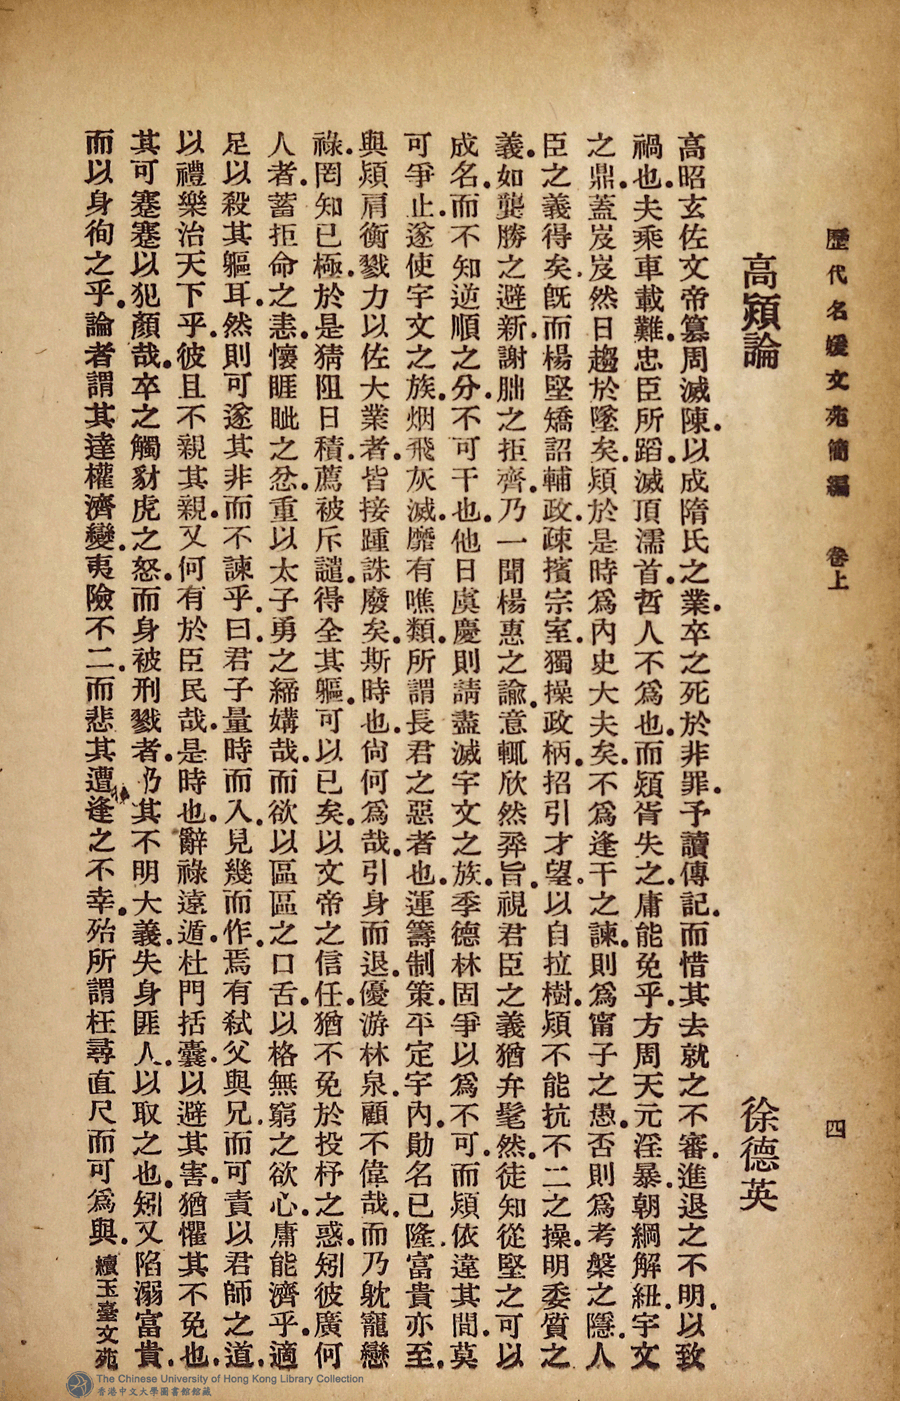 歷代名媛文苑簡編 卷上
四
高熲論
徐德英
高昭玄佐文帝篡周滅陳以成隋氏之業卒之死於非罪予讀傳記而惜其去就之不審進退之不明以致
禍也夫乘車載難忠臣所蹈滅頂濡首哲人不爲也而熲胥失之庸能免乎方周天元淫暴朝綱解紐宇文
之鼎蓋岌岌然日趨於墜矣熲於是時爲內史大夫矣不爲逢干之諫則爲甯子之愚否則爲考槃之隱人
臣之義得矣旣而楊堅矯詔輔政疎擯宗室獨操政柄招引才望以自拉樹熲不能抗不二之操明委質之
義如龔勝之避新謝朏之拒齊乃一聞楊惠之諭意輒欣然奔旨視君臣之義猶弁髦然徒知從堅之可以
成名而不知逆順之分不可干也他日虞慶則請盡滅宇文之族季德林固爭以爲不可而熲依違其間莫
可爭止遂使宇文之族烟飛灰滅靡有噍類所謂長君之惡者也運籌制策平定宇內勛名已隆富貴亦至
與熲肩衡戮力以佐大業者皆接踵誅廢矣斯時也尙何爲哉引身而退優游林泉顧不偉哉而乃躭寵戀
祿罔知已極於是猜阻日積薦被斥譴得全其軀可以已矣以文帝之信任猶不免於投杼之惑矧彼廣何
人者蓄拒命之恚懷睚眦之忿重以太子勇之締媾哉而欲以區區之口舌以格無窮之欲心庸能濟乎適
足以殺其軀耳然則可遂其非而不諫乎曰君子量時而入見幾而作焉有弒父與兄而可責以君師之道
以禮樂治天下乎彼且不親其親又何有於臣民哉是時也辭祿遠遁杜門括囊以避其害猶懼其不免也
其可蹇蹇以犯顏哉卒之觸豺虎之怒而身被刑戮者乃其不明大義失身匪人以取之也矧又陷溺富貴
而以身徇之乎論者謂其達權濟變夷險不二而悲其遭逢之不幸殆所謂枉尋直尺而可爲與 續玉臺文苑
The Chinese University of Hong Kong Library Collection
香港中文大學圖書館館藏